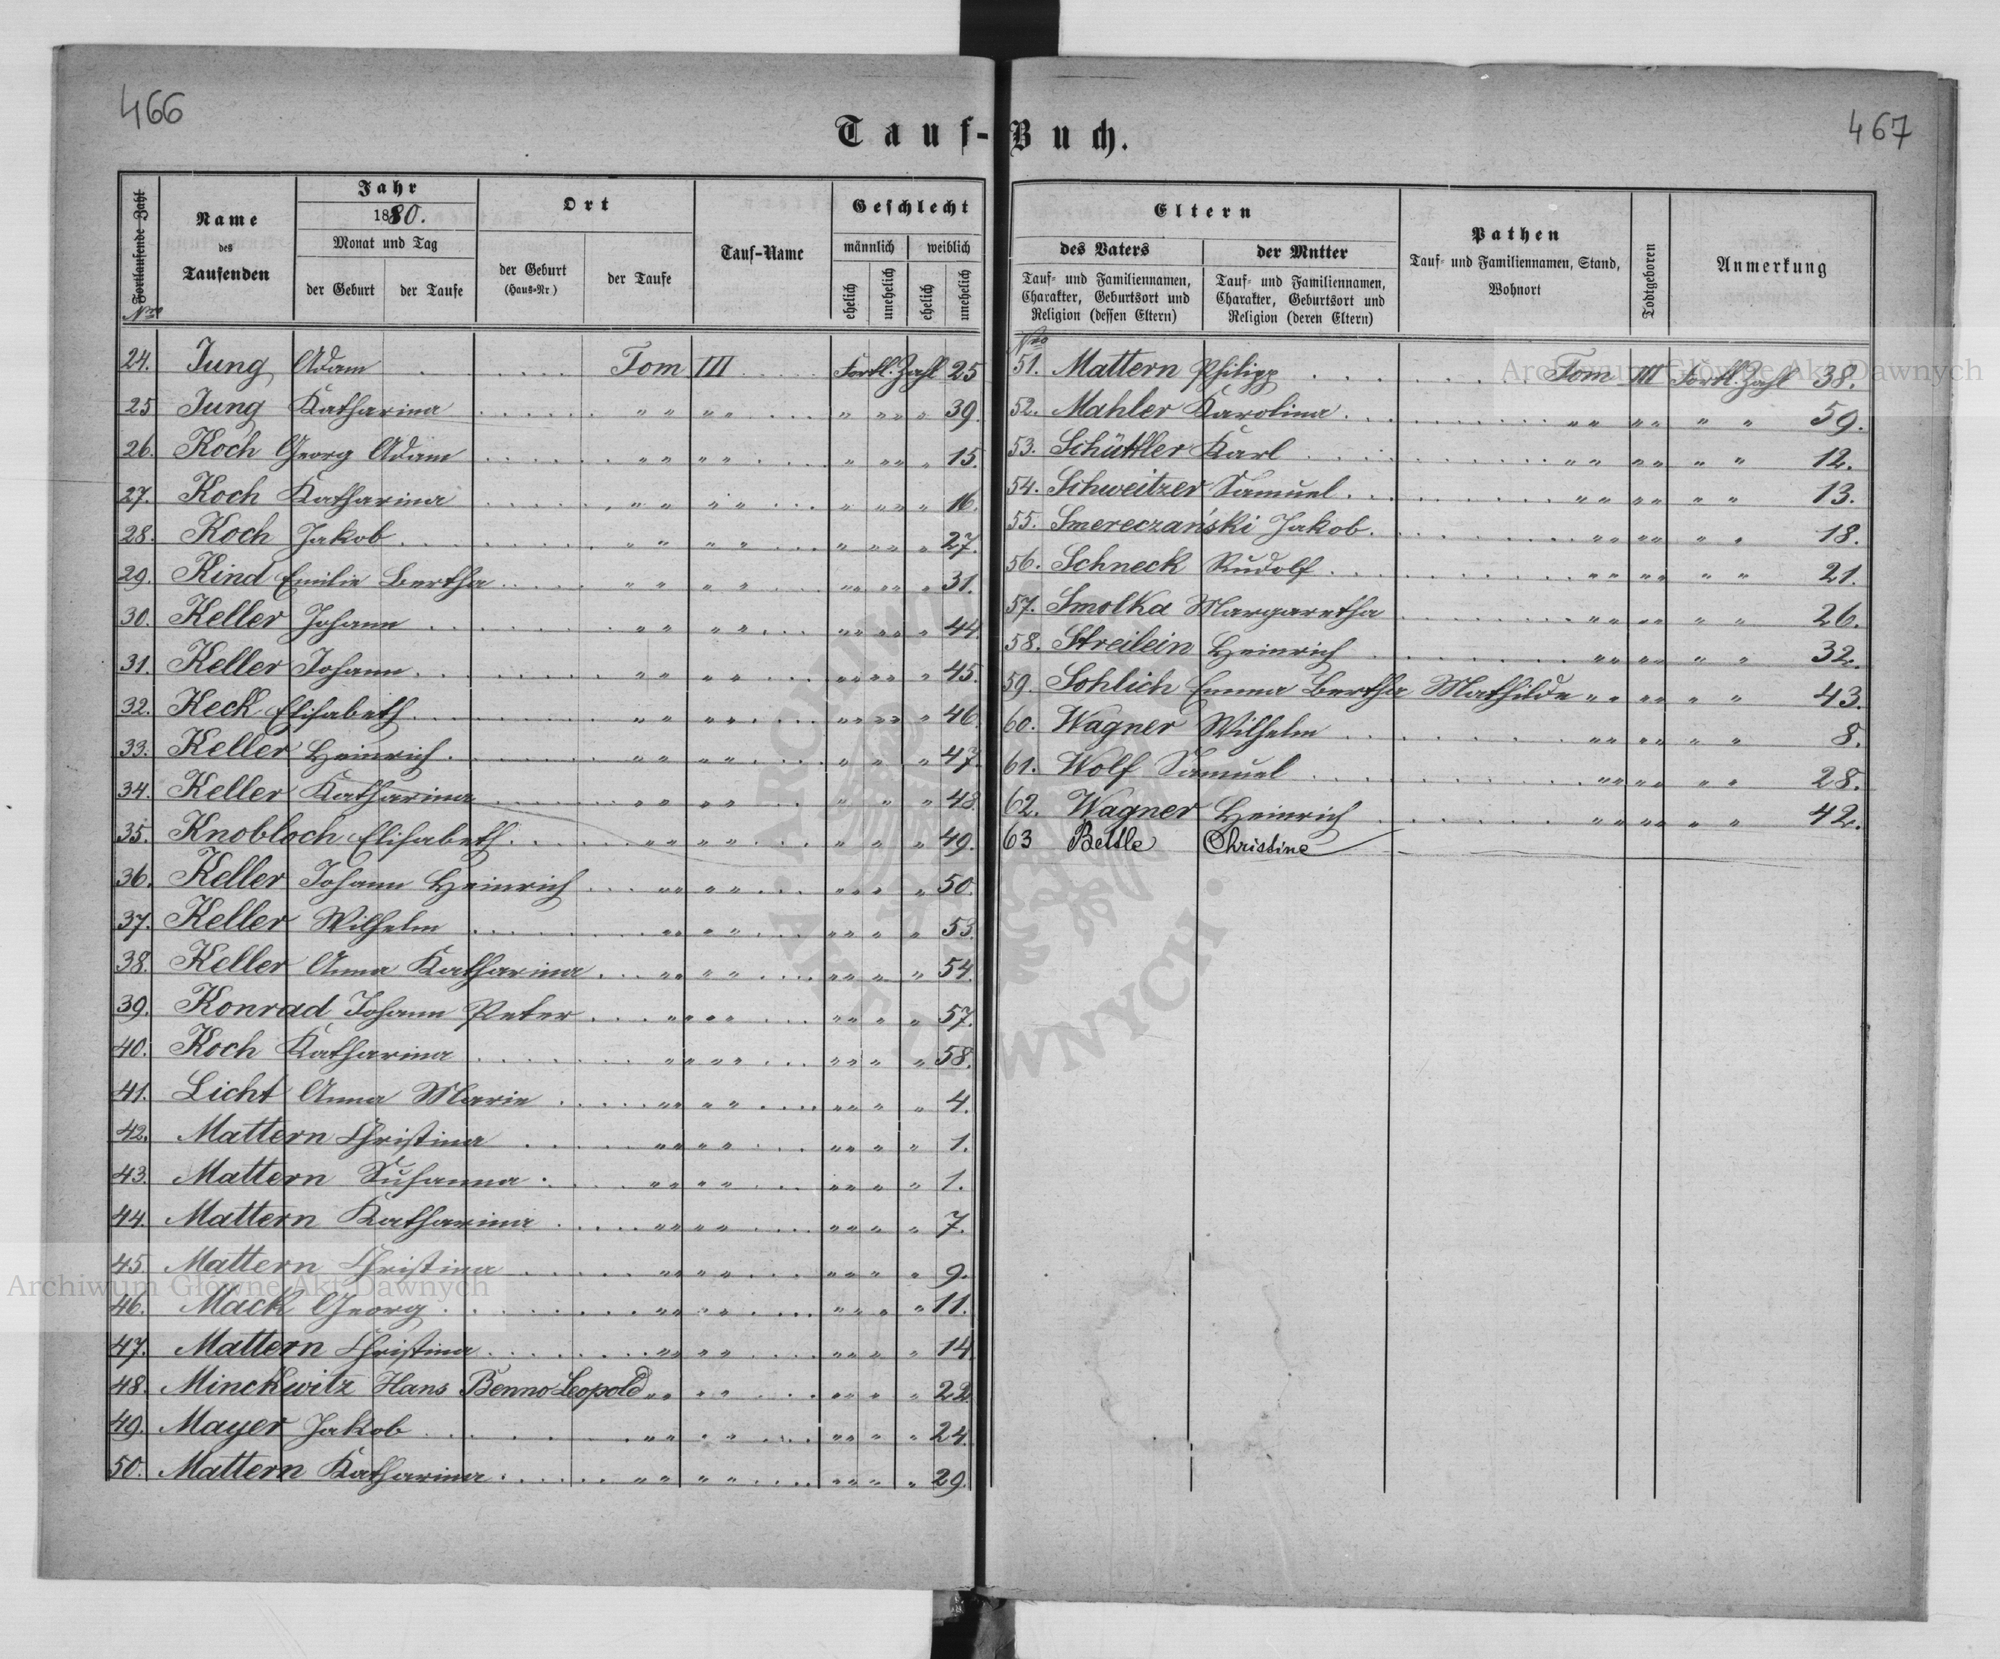 466
467
Tauf-Buch.
Fortlaufende Zahl
Nro
Name
des
Taufenden
Jahr
1880.
Monat und Tag
der Geburt
der Taufe
Ort
der Geburt
(Haus-Nr)
der Taufe
Tauf-Name
Geschlecht
männlich
weiblich
ehelich
unehelich
ehelich
unehelich
24. Jung Adam Tom III Fortl. Zahl 25
25 Jung Katharina " " " " " " " " 39.
26. Koch Georg Adam " " " " " " " " 15.
27. Koch Katharina " " " " " " " " 16.
28. Koch Jakob " " " " " " " " 27.
29. Kind Emilie Bertha " " " " " " " " 31.
30. Keller Johann " " " " " " " " " 44
31. Keller Johann " " " " " " " " " 45.
32. Keck Elisabeth " " " " " " " " " 46
33. Keller Heinrich " " " " " " " 47.
34. Keller Katharina " " " " " " " 48
35. Knobloch Elisabeth " " " " " " " 49.
36. Keller Johann Heinrich " " " " " " " " 50.
37. Keller Wilhelm " " " " " " " " 53.
38. Keller Anna Katharina " " " " " " " " 54.
39. Konrad Johann Peter " " " " " " " " 57.
40. Koch Katharina " " " " " " " " 58.
41. Licht Anna Marie " " " " " " " " 4.
42. Mattern Christina " " " " " " " " 1.
43. Mattern Susanna " " " " " " " " 1.
44. Mattern Katharina " " " " " " " " 7.
45. Mattern Christina " " " " " " " " 9.
46. Mack Georg " " " " " " " " 11.
47. Mattern Christina " " " " " " " " 14
48. Minckwitz Hans Benno Leopold " " " " " " " " 22
49. Mayer Jakob " " " " " " " " 24.
50. Mattern Katharina " " " " " " " " 29.
Eltern
des Vaters
Tauf- und Familiennamen,
Charakter, Geburtsort und
Religion (dessen Eltern)
der Mutter
Tauf- und Familiennamen,
Charakter, Geburtsort und
Religion (deren Eltern)
Pathen
Tauf- und Familiennamen, Stand,
Wohnort
Todtgeboren
Anmerkung
Nro
51. Mattern Philipp Tom III Fortl. Zahl 38.
52. Mahler Karolina " " " " " " 59.
53. Schüttler Karl " " " " " " 12.
54. Schweitzer Samuel " " " " " " 13.
55. Smereczański Jakob " " " " " " 18.
56. Schneck Rudolf " " " " " " 21.
57. Smolka Margaretha " " " " " " 26.
58. Streilein Heinrich " " " " " " 32.
59. Sohlich Emma Bertha Mathilde " " " " " " 43.
60. Wagner Wilhelm " " " " " " 8.
61. Wolf Samuel " " " " " " 28.
62. Wagner Heinrich " " " " " " 42.
63 Christine
Archiwum Główne Akt Dawnych
Archiwum Główne Akt Dawnych